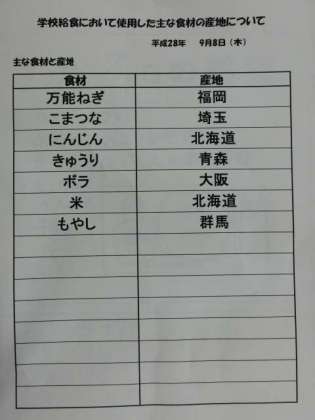 学校給食において使用した主な食材の産地について
平成28年　9月8日（木）
主な食材と産地
食材　産地
万能ねぎ　福岡
こまつな　埼玉
にんじん　北海道
きゅうり　青森
ボラ　大阪
米　北海道
もやし　群馬